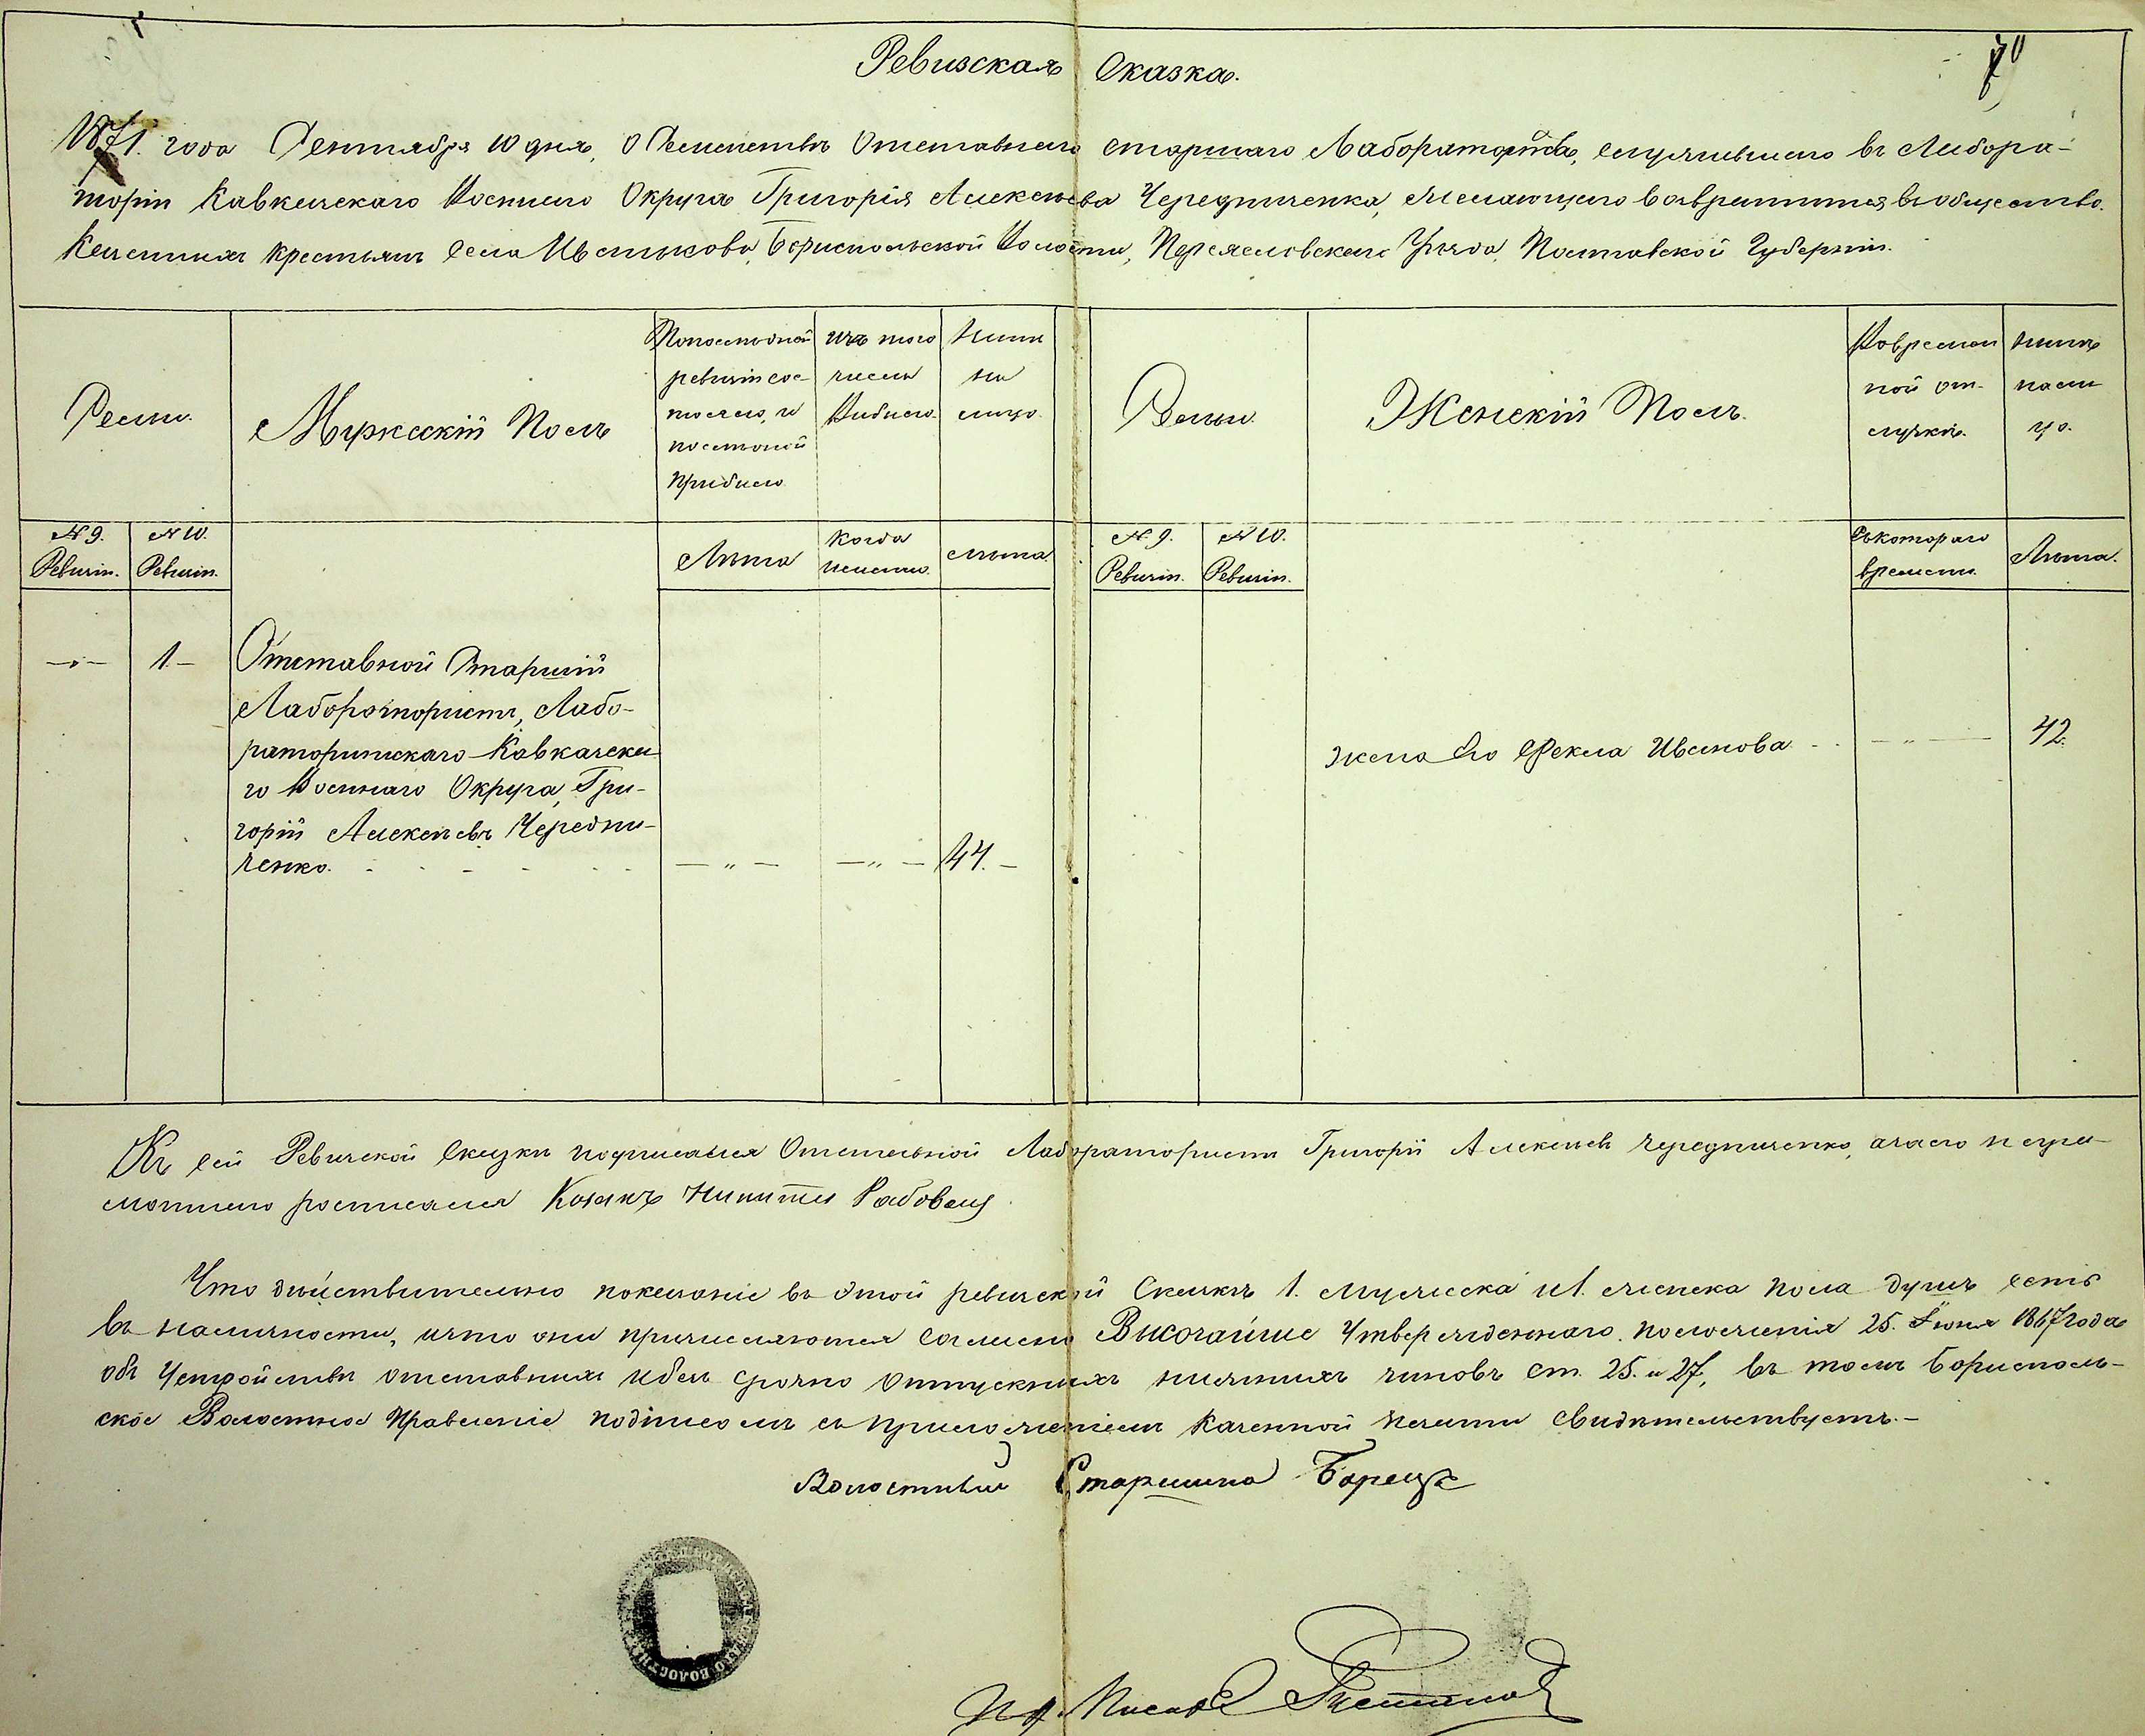 Ревизская Сказка.
70
1871. года Сентября 10 дня, о Семействѣ Отставнаго старшаго Лабораториста, служившаго въ Лабора-
торіи Кавказскаго Военнаго Округа Григорія Алексѣева Чередниченка, желающаго возвратится въ общество
Казенныхъ крестьянъ села Иванкова, Бориспольской Волости, Переяславскаго Уѣзда, Полтавской Губерніи.
Семьи.
Мужескій Полъ
По послѣдней
ревизіи сос-
тояло, и
послѣ оной
прибыло
изъ того
числа
выбыло.
Нынѣ
на
лицо.
Семьи.
Женскій Полъ.
Во времен
ной от-
лучкѣ.
нынѣ
на ли
цо.
№ 9.
Ревизіи.
№ 10.
Ревизіи.
Лѣта
Когда
именно.
лѣта.
№ 9.
Ревизіи.
№ 10.
Ревизіи.
Съ котораго
времени.
Лѣта.
—〃— 1.— Отставной Старшій
Лаборатористъ, Лабо-
раторіи Кавказска
го Военнаго Округа, Гри-
горій Алексѣевъ Чередни-
ченко. — 〃 — — 〃 — 44. —
жена Его Фекла Иванова — 〃 — 42.
Къ сей Ревизской Сказкѣ подписался Отставной Лаборатористъ Григорій Алексѣевъ Чередниченко, а за его негра-
мотнаго росписался Козакъ Никита Рабовец
Что дѣйствительно показаніе въ этой ревизской Сказкѣ 1. мужеска и 1. женска пола душъ есть
въ наличности, и что они причисляются согласно Высочайше Утвержденнаго положенія 25. Іюня 1867 года
объ Устройствѣ отставныхъ и без срочно отпускныхъ нижнихъ чиновъ ст. 25. и 27, въ томъ Бориспольь-
ское Волостное Правленіе подписомъ съ приложеніемъ казенной печати свидѣтельствуетъ.—
Волостный Старшина Борецъ
Писарь